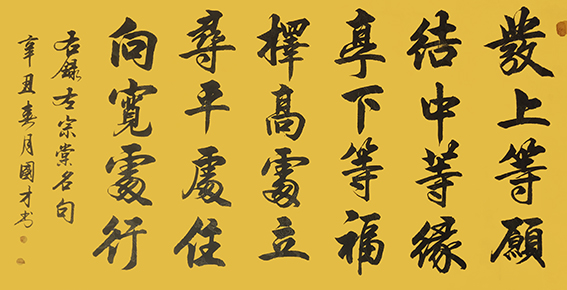 發上等願
結中等緣
享下等福
擇高處立
尋平處住
向寬處行
右錄左宗棠名句
辛丑春月國才书